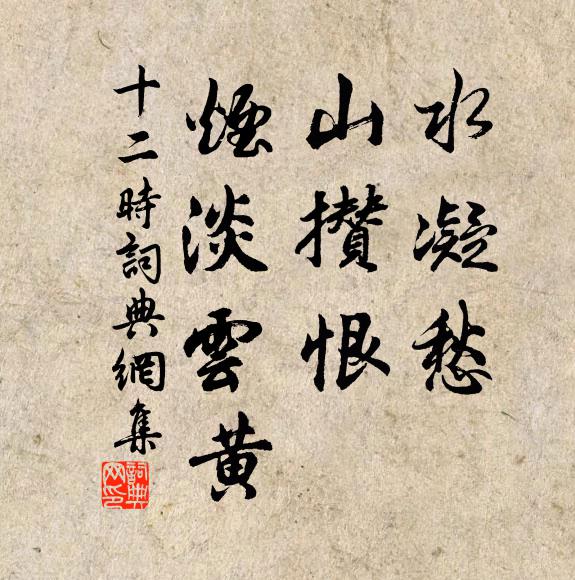 水凝愁
山攢恨
煙淡雲黃
十二時詞典網集
詞典
网印